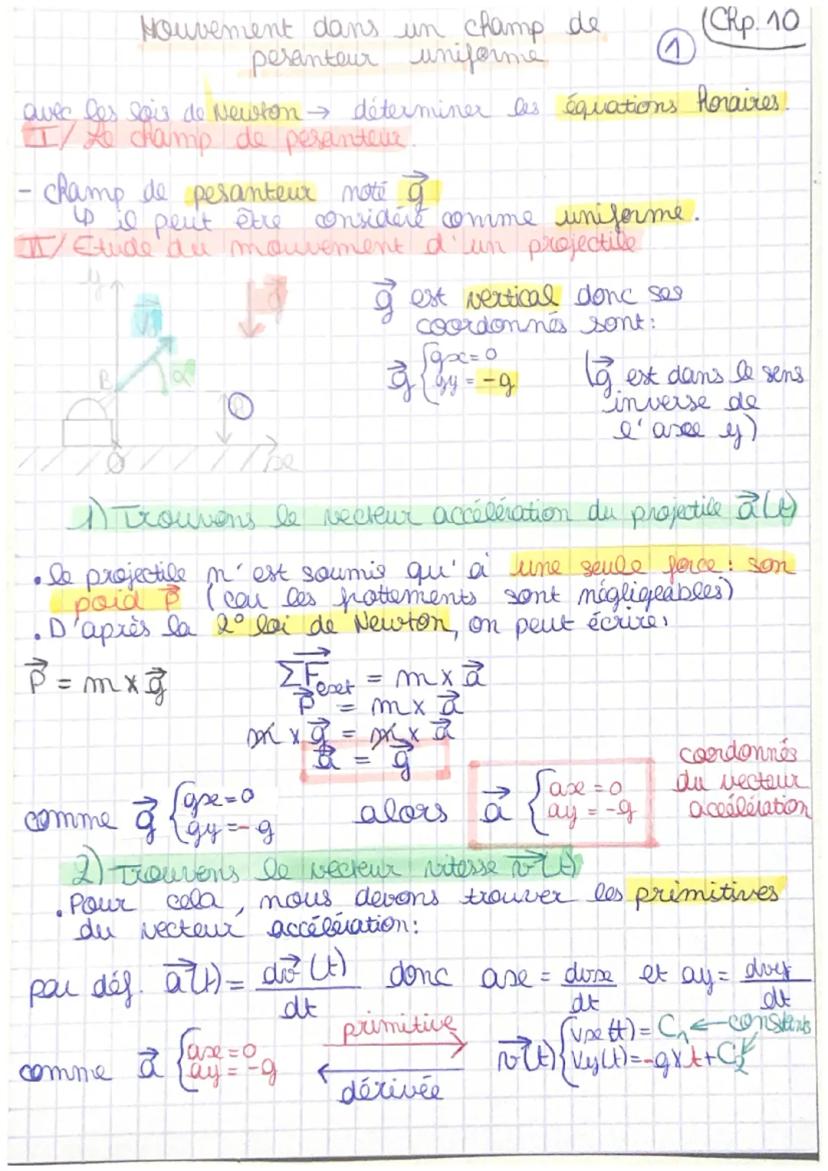 Mouvement dans un champ de
pesanteur uniforme
1
Chp. 10
avec les lois de Newton → déterminer les équations horaires.
I/ Le champ de pesanteur.
- champ de pesanteur noté g⃗
↳ il peut être considéré comme uniforme.
II/ Etude du mouvement d'un projectile
y
g⃗
α
B
O
x
g⃗ est vertical donc ses
coordonnés sont:
g⃗ { gx = 0
gy = -g
(g⃗ est dans le sens
inverse de
l'axe y)
1) Trouvons le vecteur accélération du projectile a⃗(t)
• le projectile n'est soumis qu'à une seule force: son
poid P⃗ (car les frottements sont négligeables)
• D'après la 2° loi de Newton, on peut écrire:
P⃗ = m x g⃗
ΣF⃗ext = m x a⃗
P⃗ = m x a⃗
m x g⃗ = m x a⃗
a⃗ = g⃗
comme g⃗ { gx = 0
gy = -g
alors a⃗ { ax = 0
ay = -g
coordonnés
du vecteur
accélération
2) Trouvons le vecteur vitesse v⃗(t)
• Pour cela, nous devons trouver les primitives
du vecteur accélération:
par déf. a⃗(t) = dv⃗(t)/dt donc ax = dvx/dt et ay = dvy/dt
comme a⃗ { ax = 0
ay = -g
primitive
dérivée
v⃗(t) { vx(t) = C₁ ← constants
vy(t) = -g x t + C₂